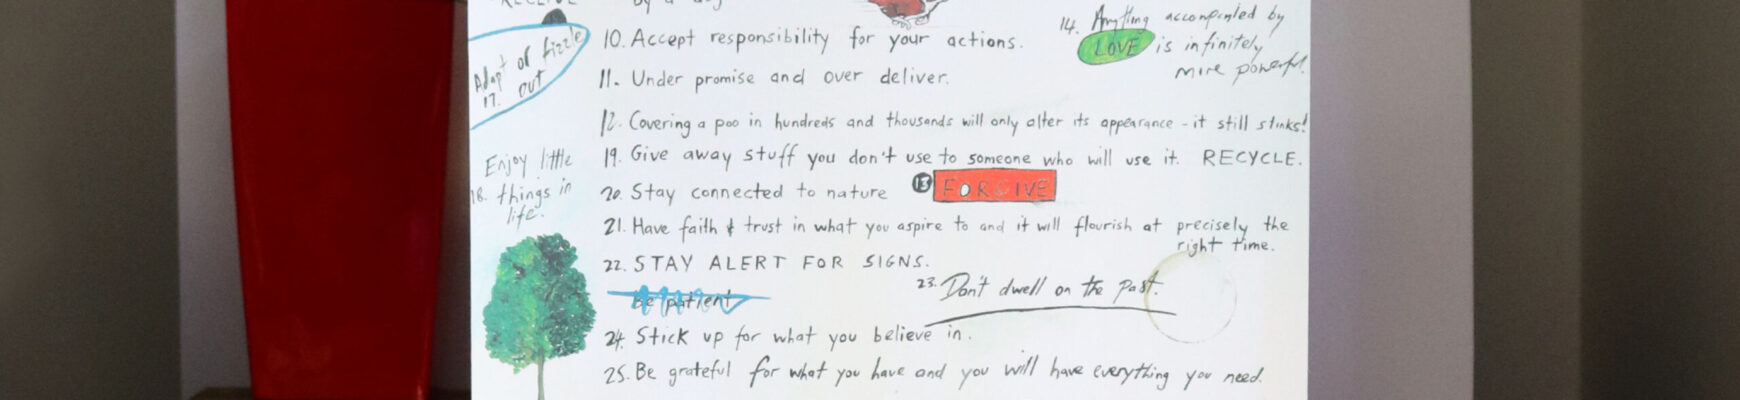 by a dog
14. Anything accompanied by
LOVE is infinitely
more powerful!
Adapt or fizzle
17. out
10. Accept responsibility for your actions.
11. Under promise and over deliver.
12. Covering a poo in hundreds and thousands will only alter its appearance - it still stinks!
Enjoy little
18. things in
life.
19. Give away stuff you don't use to someone who will use it. RECYCLE.
20. Stay connected to nature
13 FORGIVE
21. Have faith & trust in what you aspire to and it will flourish at precisely the
right time.
22. STAY ALERT FOR SIGNS.
23. Don't dwell on the past.
Be patient
24. Stick up for what you believe in.
25. Be grateful for what you have and you will have everything you need.